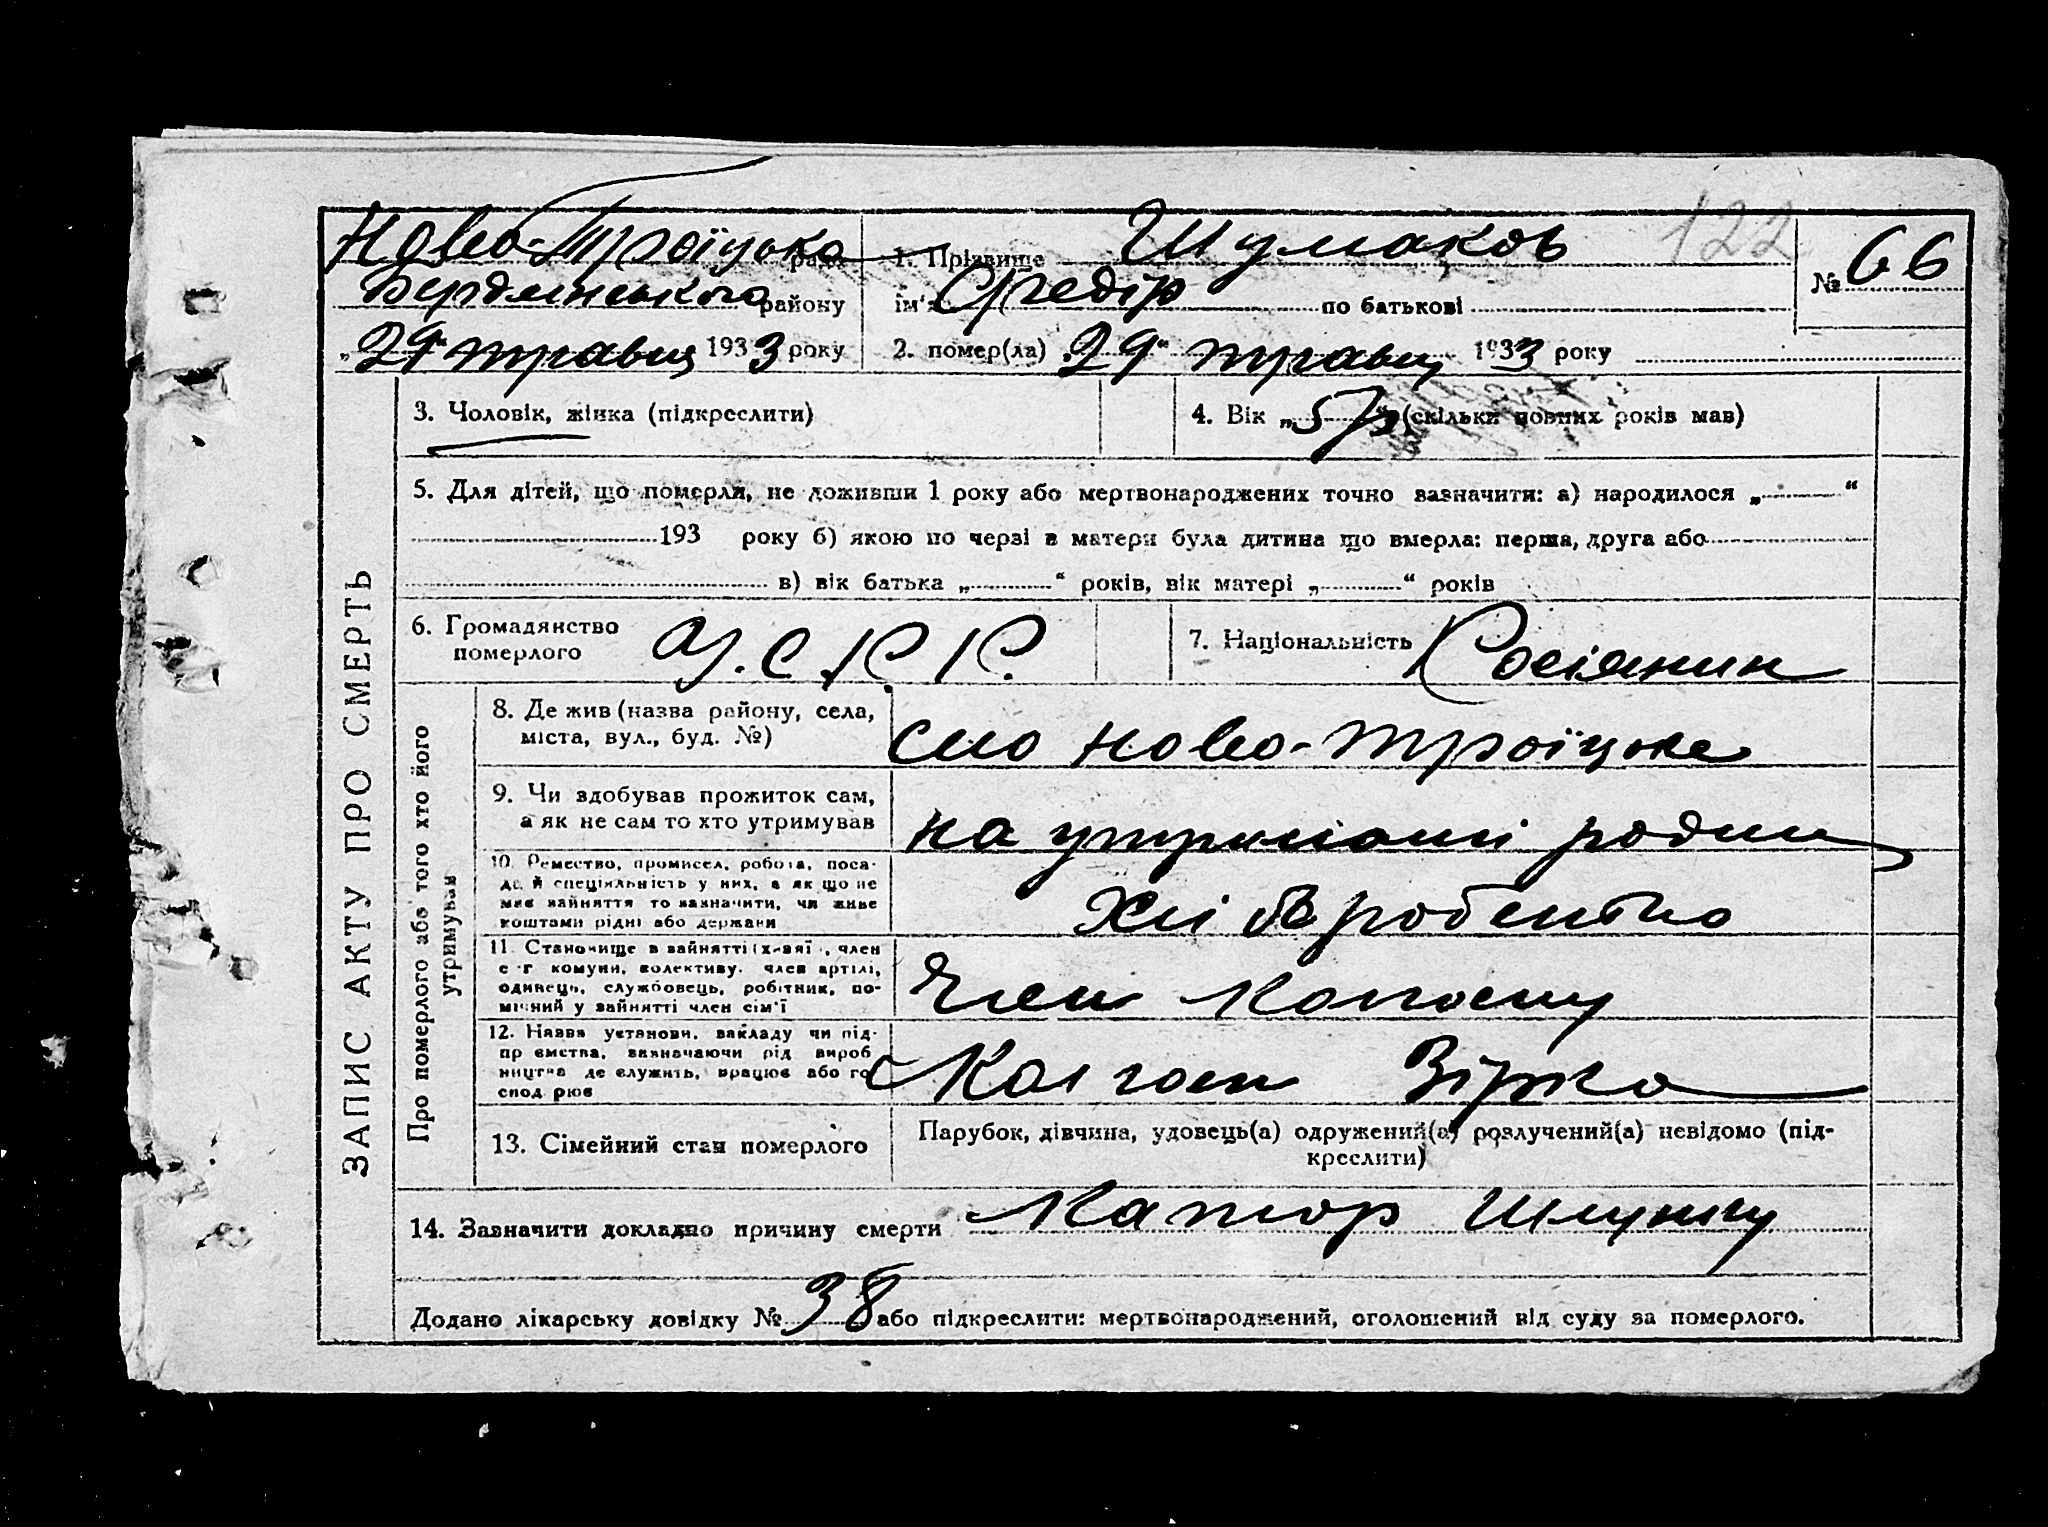 122
Ново-Троїцька рада
Бердянського району
„29“ травня 1933 року
1. Прізвище Шумаков
ім'я Фредір по батькові
2. помер(ла) „29“ травня 1933 року
№ 66
ЗАПИС АКТУ ПРО СМЕРТЬ
3. Чоловік, жінка (підкреслити)
4. Вік „57“ (скільки повних років мав)
5. Для дітей, що померли, не доживши 1 року або мертвонароджених точно зазначити: а) народилося „ “
193 року б) якою по черзі в матери була дитина що вмерла: перша, друга або
в) вік батька „ “ років, вік матері „ “ років
6. Громадянство
померлого У.С.Р.Р.
7. Національність Росіянин
Про померлого або того хто його
утримував
8. Де жив (назва району, села,
міста, вул., буд. №)
село Ново-Троїцьке
9. Чи здобував прожиток сам,
а як не сам то хто утримував
на утриманні родини
10. Ремество, промисел, робота, поса-
да й спеціяльність у них, а як що не
мав зайняття то зазначити, чи живе
коштами рідні або держави
Хліборобство
11. Становище в зайнятті (хазяї , член
с-г комуни, колективу, член артілі,
одинець, службовець, робітник, по-
мічний у зайнятті член сім'ї
Член колгоспу
12. Назва установи, закладу чи під-
пр ємства, зазначаючи рід вироб
ництва де служить, працює або го
спод рює
Колгосп Зірка
13. Сімейний стан померлого
Парубок, дівчина, удовець(а) одружений(а) розлучений(а) невідомо (під-
креслити)
14. Зазначити докладно причину смерти Катар Шлунку
Додано лікарську довідку № 38 або підкреслити: мертвонароджений, оголошений від суду за померлого.